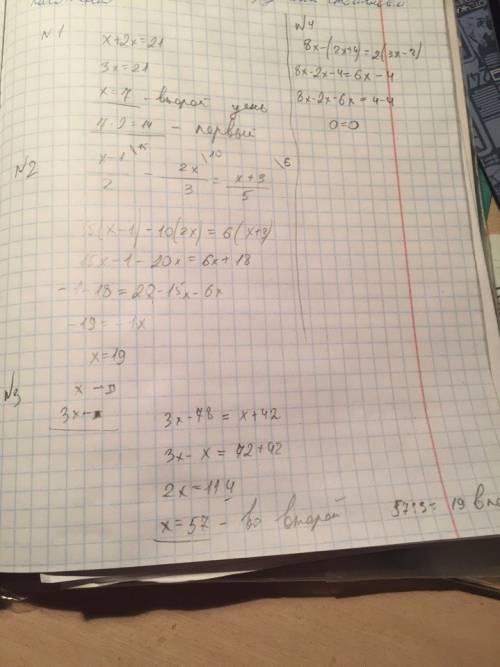 №1
x+2x=21
3x=21
x=7 - второй день
7·2=14 - первый
№2
x-1\15 / 2 - 2x\10 / 3 = x+3\6 / 5
15(x-1)-10(2x)=6(x+3)
15x-1-20x=6x+18
-1-18=22-15x-6x
-19=-1x
x=19
№3
x - II
3x -
3x-78=x+42
3x-x=72+42
2x=114
x=57 - во второй
57:3= 19 в
№4
8x-(2x+4)=2(3x-2)
8x-2x-4=6x-4
8x-2x-6x=4-4
0=0